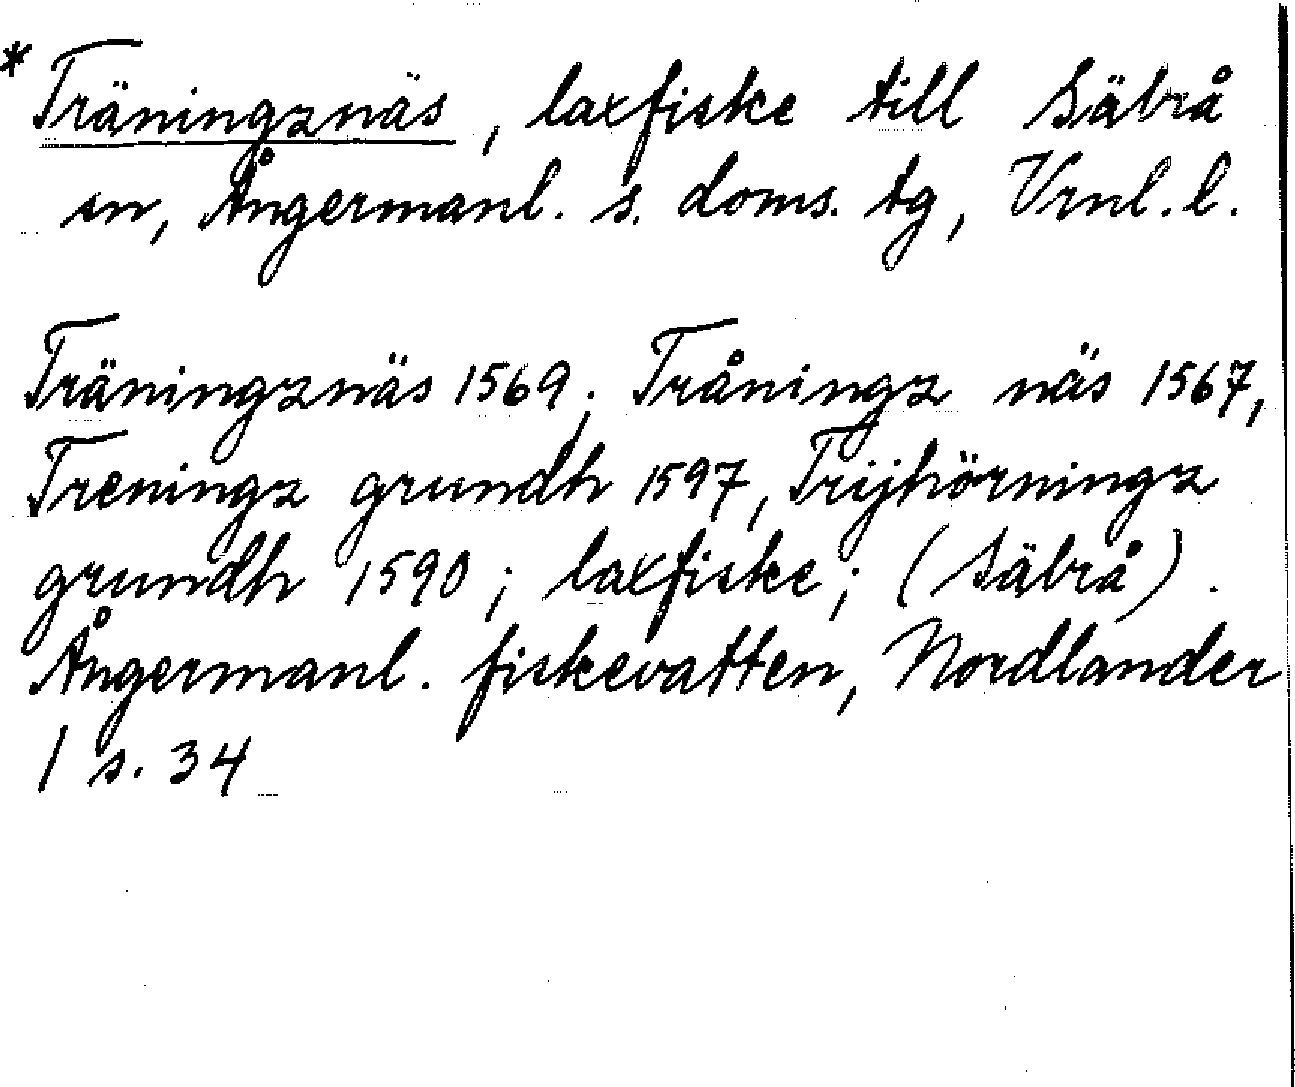 * Träningznäs, laxfiske till Säbrå
sn, Ångermanl. s. doms. tg, Vrnl. l.
Träningznäs 1569, Tråningz näs 1567,
Treningz grundh 1597, Trijhörningz
grundh 1590; laxfiske; (Säbrå).
Ångermanl. fiskevatten, Nordlander
I s. 34